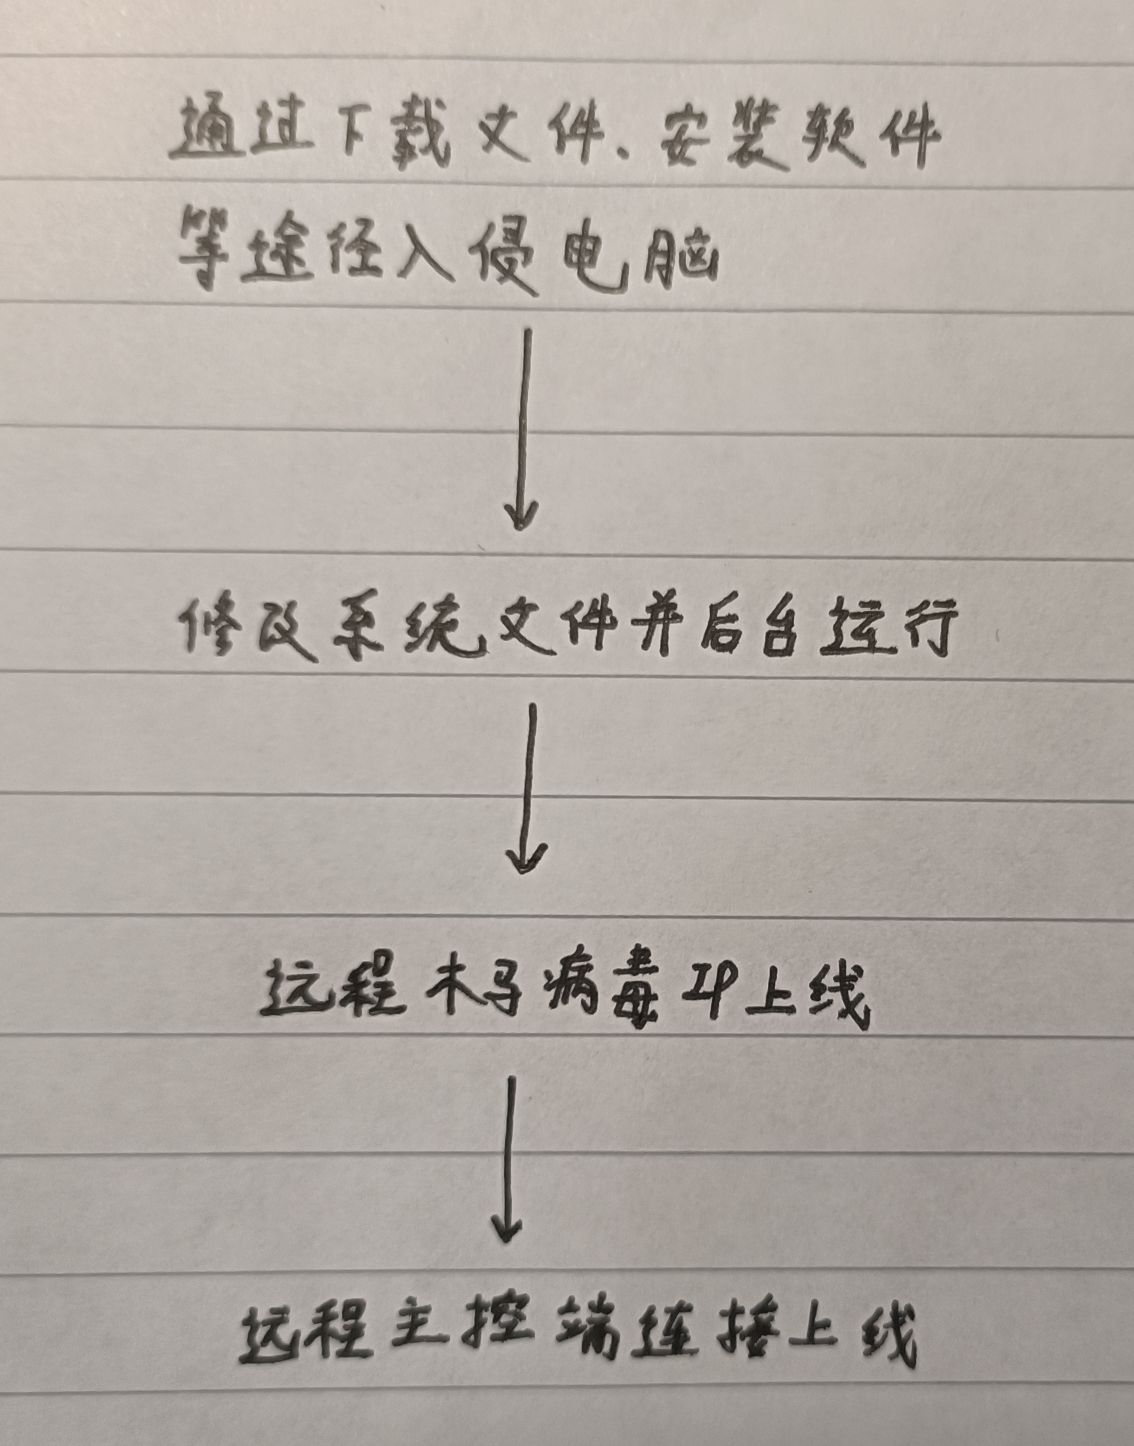 通过下载文件、安装软件
等途径入侵电脑
修改系统文件并后台运行
远程木马病毒IP上线
远程主控端连接上线